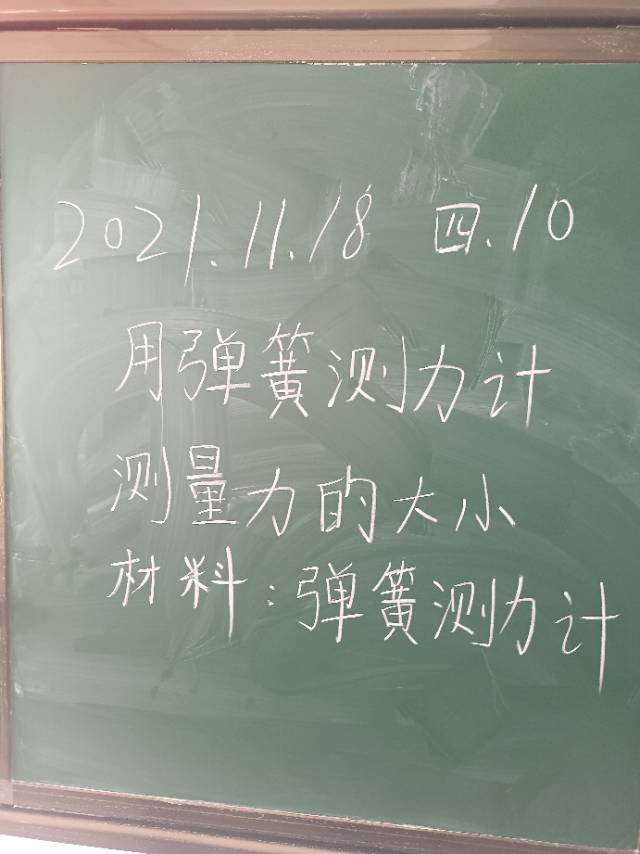 2021.11.18 四.10
用弹簧测力计
测量力的大小
材料:弹簧测力计